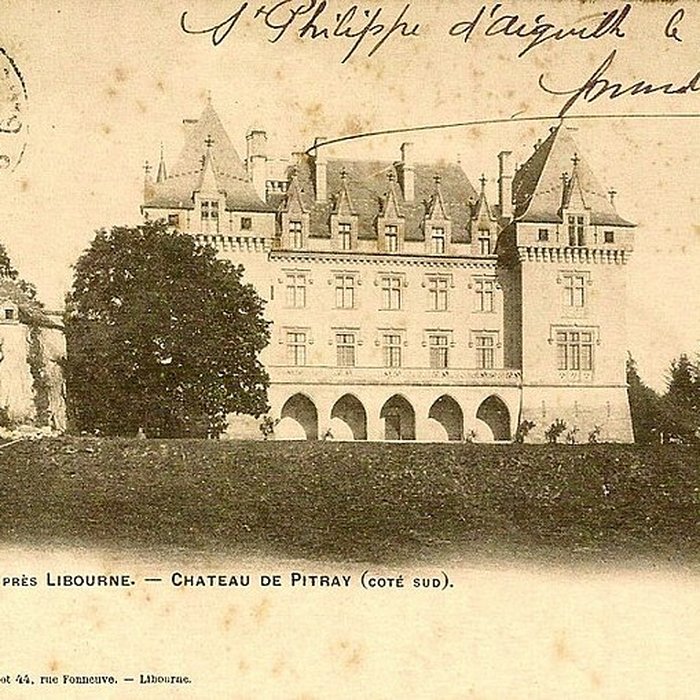 St Philippe d'aiguilh le
PRÈS LIBOURNE. — CHATEAU DE PITRAY (COTÉ SUD).
ot 44, rue Fonneuve. — Libourne.